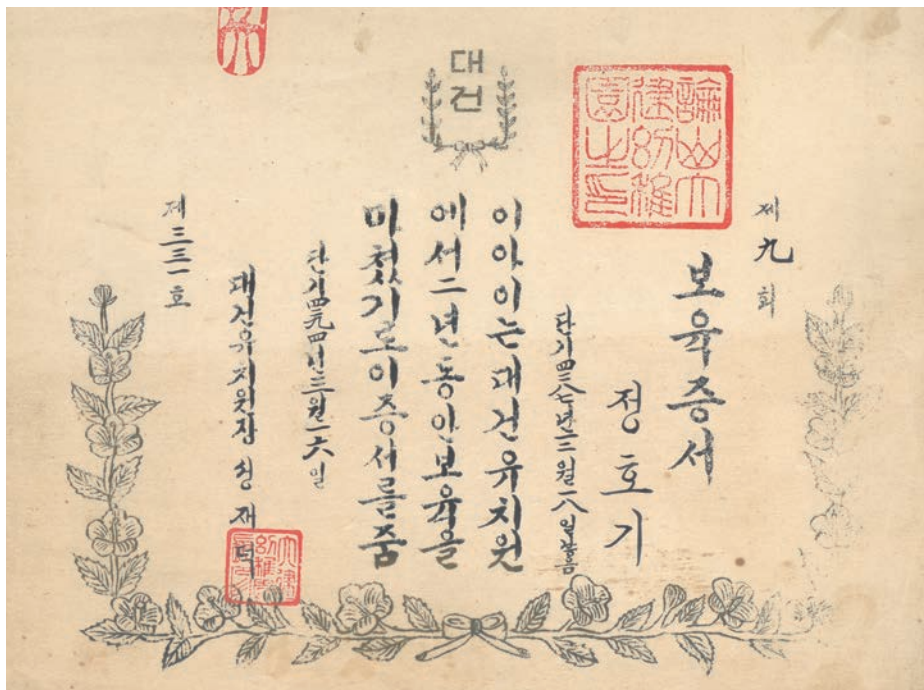 대건
論山大
建幼稚
園之印
제九회
보육증서
정호기
단기四二八七년二월一八일
이아이는대건유치원
에서二년동안보육을
마쳤기로이증서를줌
단기四二九四년三월一六일
대건유치원장 재덕
제三三一호